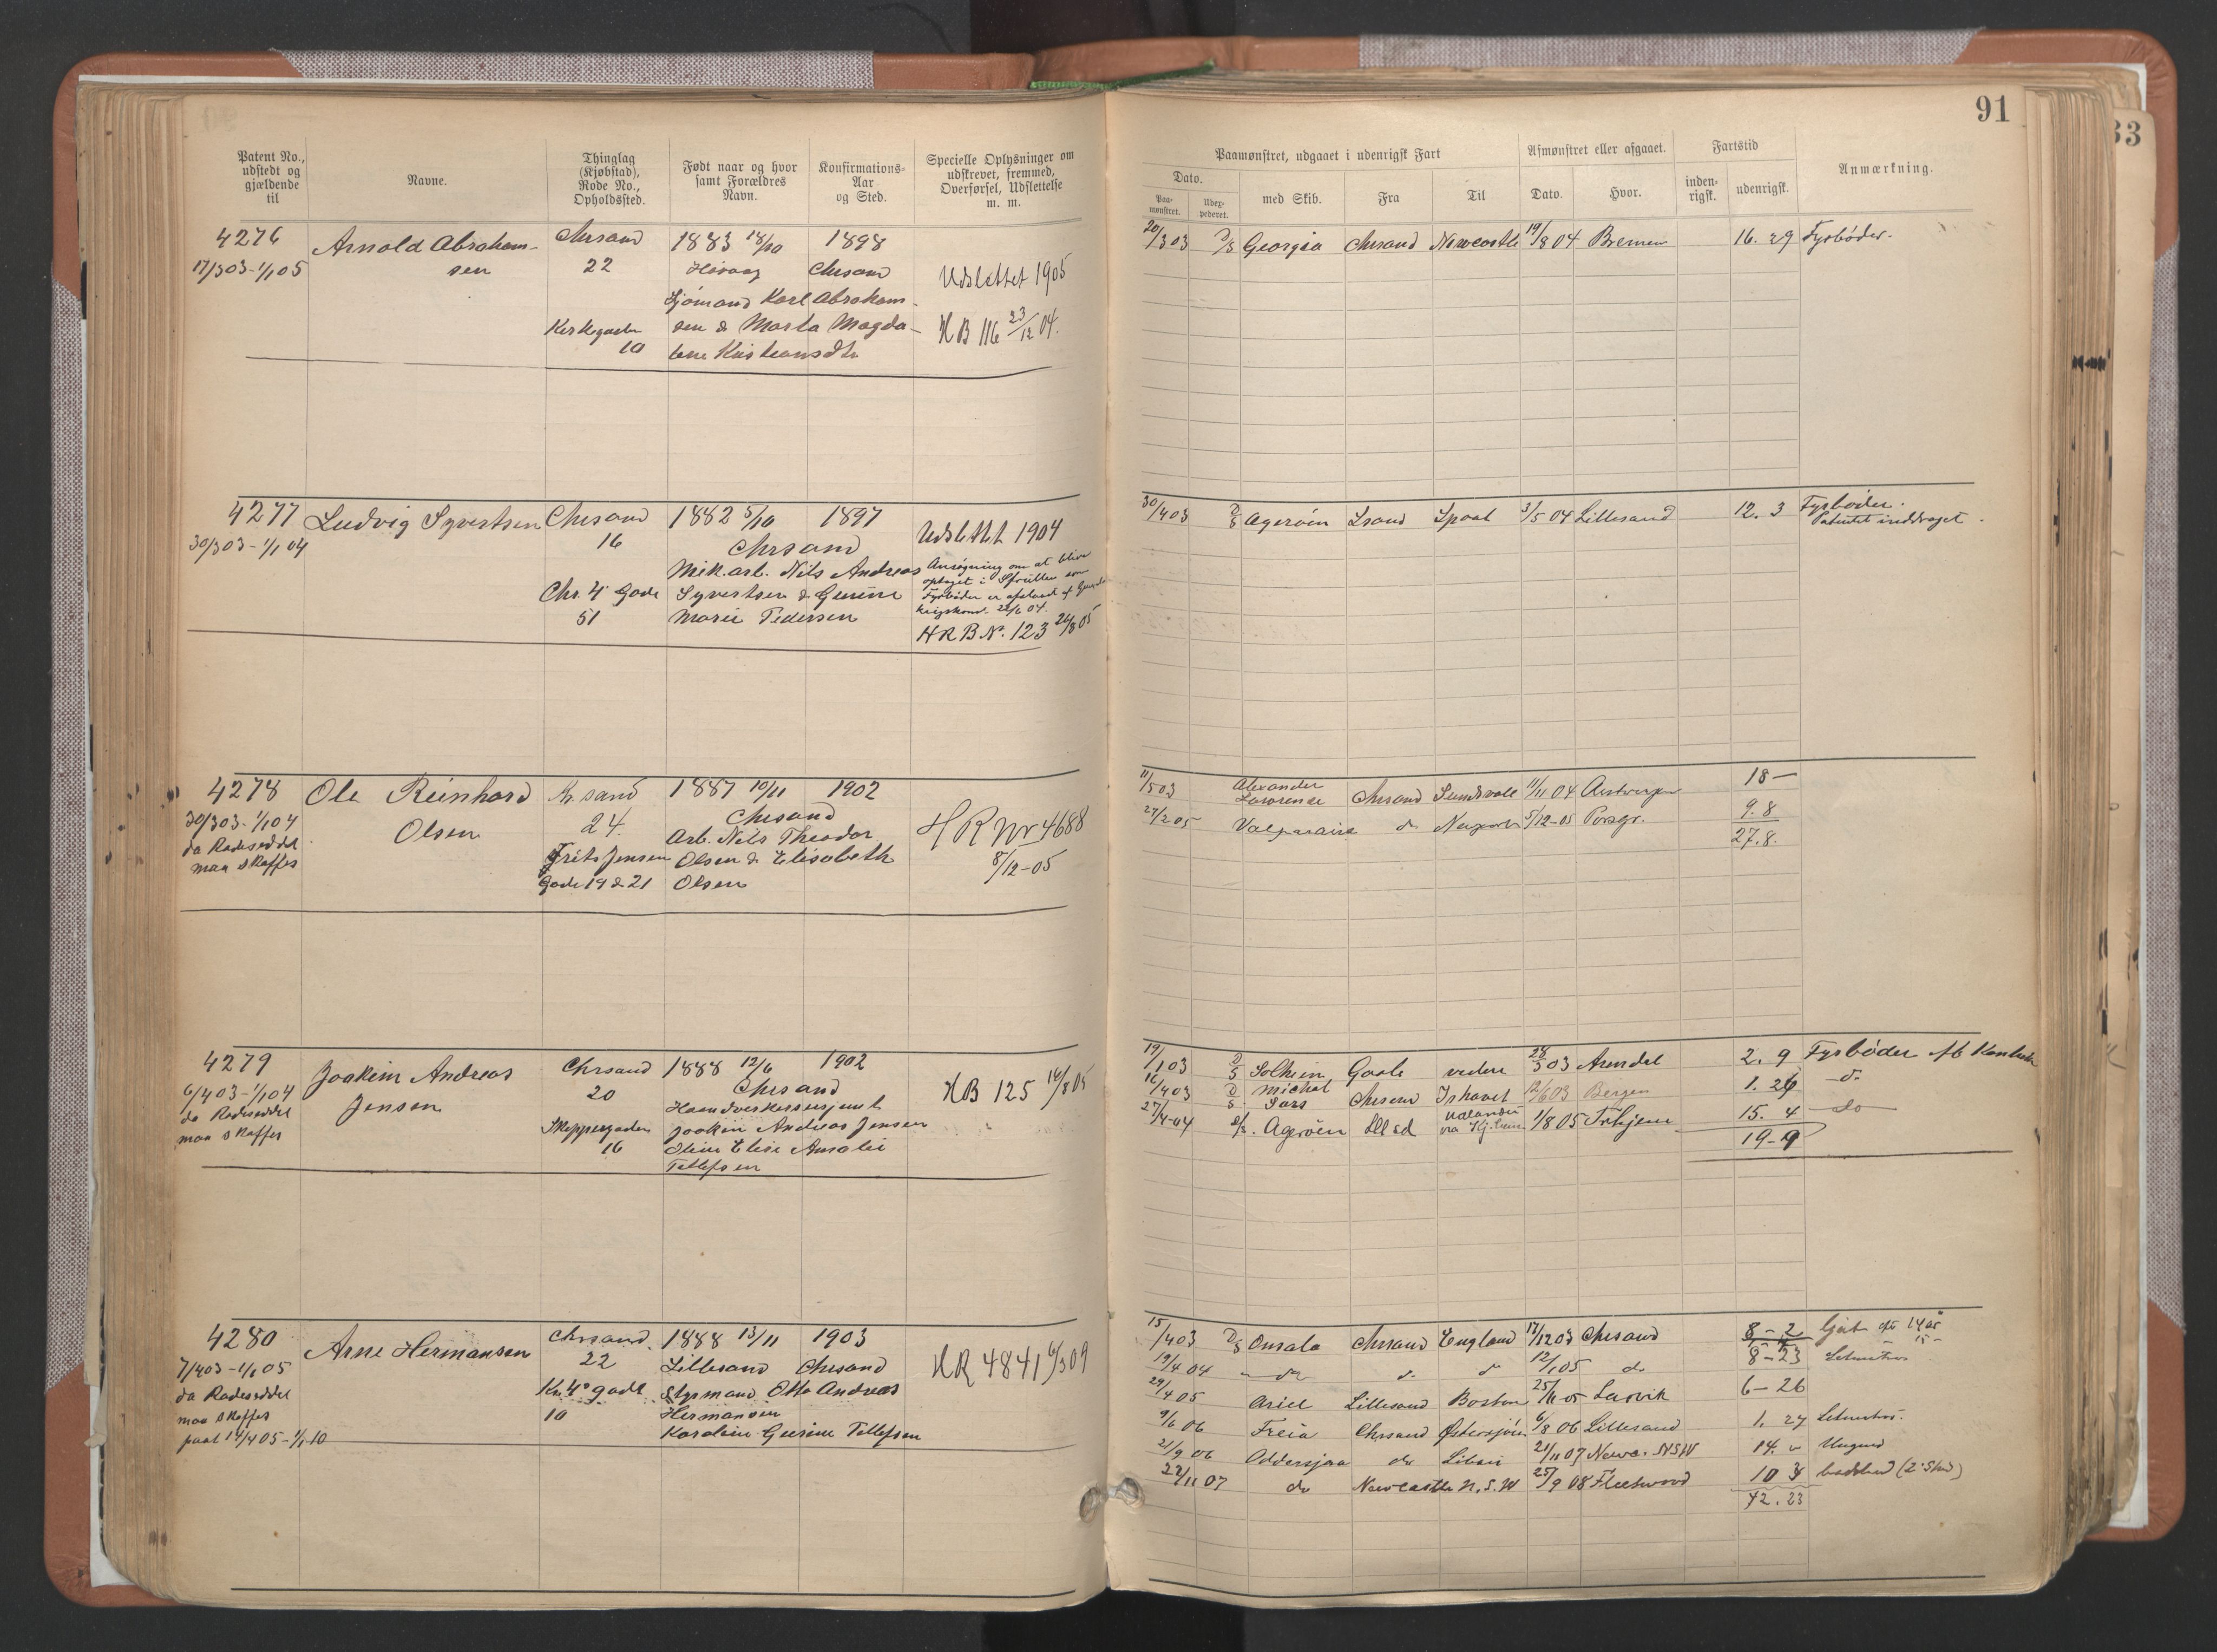 91
33
Patent No., udstedt og gjældende til
Navne.
Thinglag (Kjøbstad), Rode No., Opholdssted.
Født naar og hvor samt Forældres Navn.
Konfirmations-Aar og Sted.
Specielle Oplysninger om udskrevet, fremmed, Overførsel, Udslettelse m. m.
Paamønstret, udgaaet i udenrigsk Fart
Afmønstret eller afgaaet.
Fartstid
Anmærkning.
Dato.
Paa-mønstret.
Udex-pederet.
med Skib.
Fra
Til
Dato.
Hvor.
inden-rigsk.
udenrigsk.
4276 Arnold Abraham- Chrsand 1883 18/10 1898
17/3 03 - 1/1 05 sen 22 Høvaag Chrsand Udslettet 1905
Sjömand Karl Abraham-
Kirkegaden sen & Marta Magda- HB 116 23/12 04.
10 lene Kristiansdtr
20/3 03 D/S Georgia Chrsand Newcastle 19/8 04 Bremen 16. 29 Fyrbøder.
4277 Ludvig Syvertsen Chrsand 1882 5/10 1897
30/3 03 - 1/1 04 16 Chrsand Udslettet 1904
Mek. arb. Nils Andreas Ansøgning om at blive
Chr. 4' Gade Syvertsen & Gurine optaget i Sjørullen som
Fyrbøder er afslaaet af
51 Marie Pedersen krigskom. 22/6 04.
HRB No. 123 26/8 05
30/4 03 D/S Agerøen Lsand 3/5 04 Lillesand 12. 3 Fyrbøder.
Patentet inddraget.
4278 Ole Reinhard Kr.sand 1887 10/11 1902
30/3 03 - 1/1 04 Olsen 24. Chrsand HR Nr 4688
da Radeseddel Arb. Nils Theodor
maa skaffes Frits Jensen Olsen & Elisabeth 8/12-05
Gade 19 & 21 Olsen
11/5 03 Alexander Lawrence Chrsand Sundsvall 11/11 04 Antwerpen 18 —
27/2 05 Valparaiso do Newport 5/12-05 Porsgr. 9. 8
27. 8.
4279 Joakim Andreas Chrsand 1888 12/6 1902
6/4 03 - 1/1 04 Jensen 20 Chrsand HB 125 14/8 05
da Radeseddel Haandverkerssvend
maa skaffes Skippergaden Joakim Andreas Jensen
16 Oline Elise Amalie
Tellefsen
19/1 03 D/S Solheim Gaale videre 28/3 03 Arendal 2. 9 Fyrbøder
16/4 03 D/S Michal Sars Chrsand Ishavet 12/6 03 Bergen 1. 26 — do
27/4-04 D/S. Agerøen Lllsd 1/8 05 Trhjem 15. 4 — do —
19-9
4280 Arne Hermansen Chrsand. 1888 13/11 1903
7/4 03 - 1/1 05 22 Lillesand Chrsand HR 4841 6/3 09
da Radeseddel Kr. 4° gade Styrmand Otto Andreas
maa skaffes 10 Hermansen
paat 14/4 05 - 1/1 10 Karoline Gurine Tellefsen
15/4 03 D/S Onsala Chrsand England 17/12 03 Chrsand 8 - 2 Gut 14 år
19/4 04 do do do 12/1 05 do 8 - 23 Letmatros 15 -
29/4 05 Ariel Lillesand Boston 25/11 05 Larvik 6 - 26
9/6 06 Freia Chrsand Østersjøen 6/8 06 Lillesand 1. 27 Letmatros.
21/9 06 Oddersjaa do Libau 21/11 07 Newc. NSW 14. " Ungmd
22/11 07 do Newcastle N.S.W 25/9 08 Fleetwood 10 3
42. 23